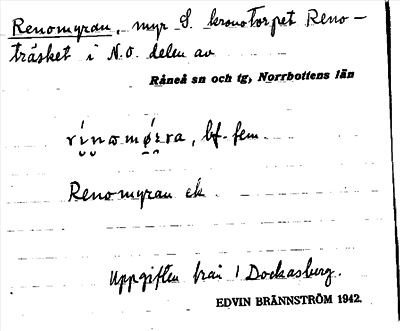 Renomyran, myr S. kronotorpet Reno-
träsket i N.O. delen av
Råneå sn och tg, Norrbottens län
bf. fem.
Renomyran ek.
Uppgiften från 1 Dockasberg.
EDVIN BRÄNNSTRÖM 1942.